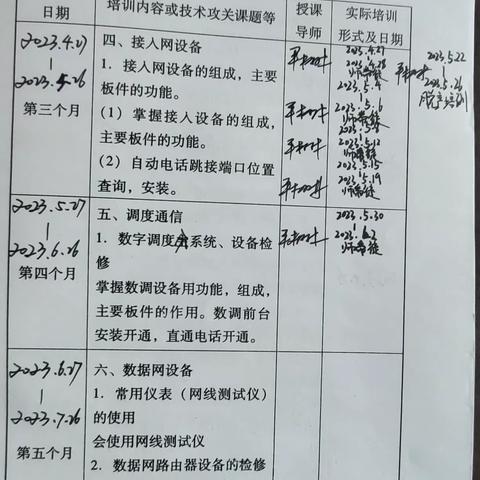 日期
培训内容或技术攻关课题等
授课
导师
实际培训
形式及日期
2023.4.27
2023.5.26
第三个月
四、接入网设备
1. 接入网设备的组成，主要
板件的功能。
(1) 掌握接入设备的组成，
主要板件的功能。
(2) 自动电话跳接端口位置
查询，安装。
2023.4.27
2023.4.28
师带徒
2023.5.4
2023.5.6
师带徒
2023.5.12
师带徒
2023.5.15
2023.5.19
师带徒
2023.5.22
2023.5.26
脱产培训
2023.5.27
2023.6.26
第四个月
五、调度通信
1. 数字调度系统、设备检
修
掌握数调设备用功能，组成，
主要板件的作用。数调前台
安装开通，直通电话开通。
2023.5.30
2023.6.2
师带徒
2023.6.27
2023.7.26
第五个月
六、数据网设备
1. 常用仪表（网线测试仪）
的使用
会使用网线测试仪
2. 数据网路由器设备的检修